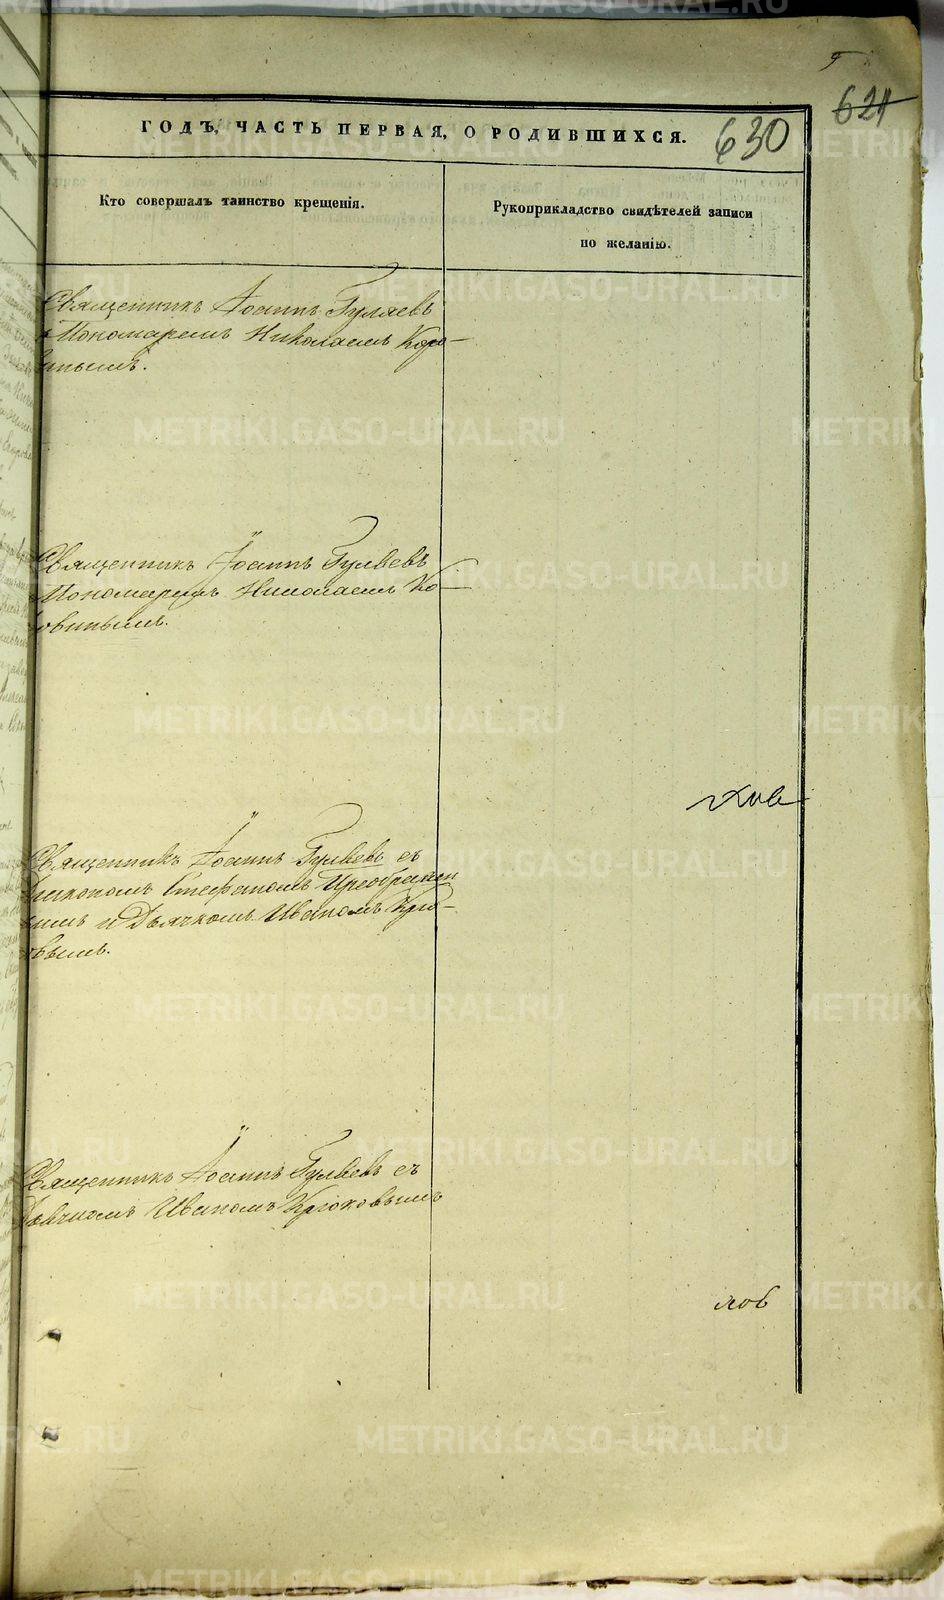 9
621
630
ГОДЪ, ЧАСТЬ ПЕРВАЯ, О РОДИВШИХСЯ.
Кто совершалъ таинство крещенія.
Рукоприкладство свидѣтелей записи
по желанію.
Священникъ Іоаннъ Гуляевъ
Пономаремъ Николаемъ Коро-
Священникъ Іоаннъ Гуляевъ
Пономаремъ Николаемъ Ко-
Священникъ Іоаннъ Гуляевъ съ
Диакономъ Стефаномъ Преображен
и Дьячкомъ Иваномъ Крю-
ковымъ.
Священникъ Іоаннъ Гуляевъ съ
Дьячкомъ Иваномъ Крюковымъ
ковъ
METRIKI.GASO-URAL.RU